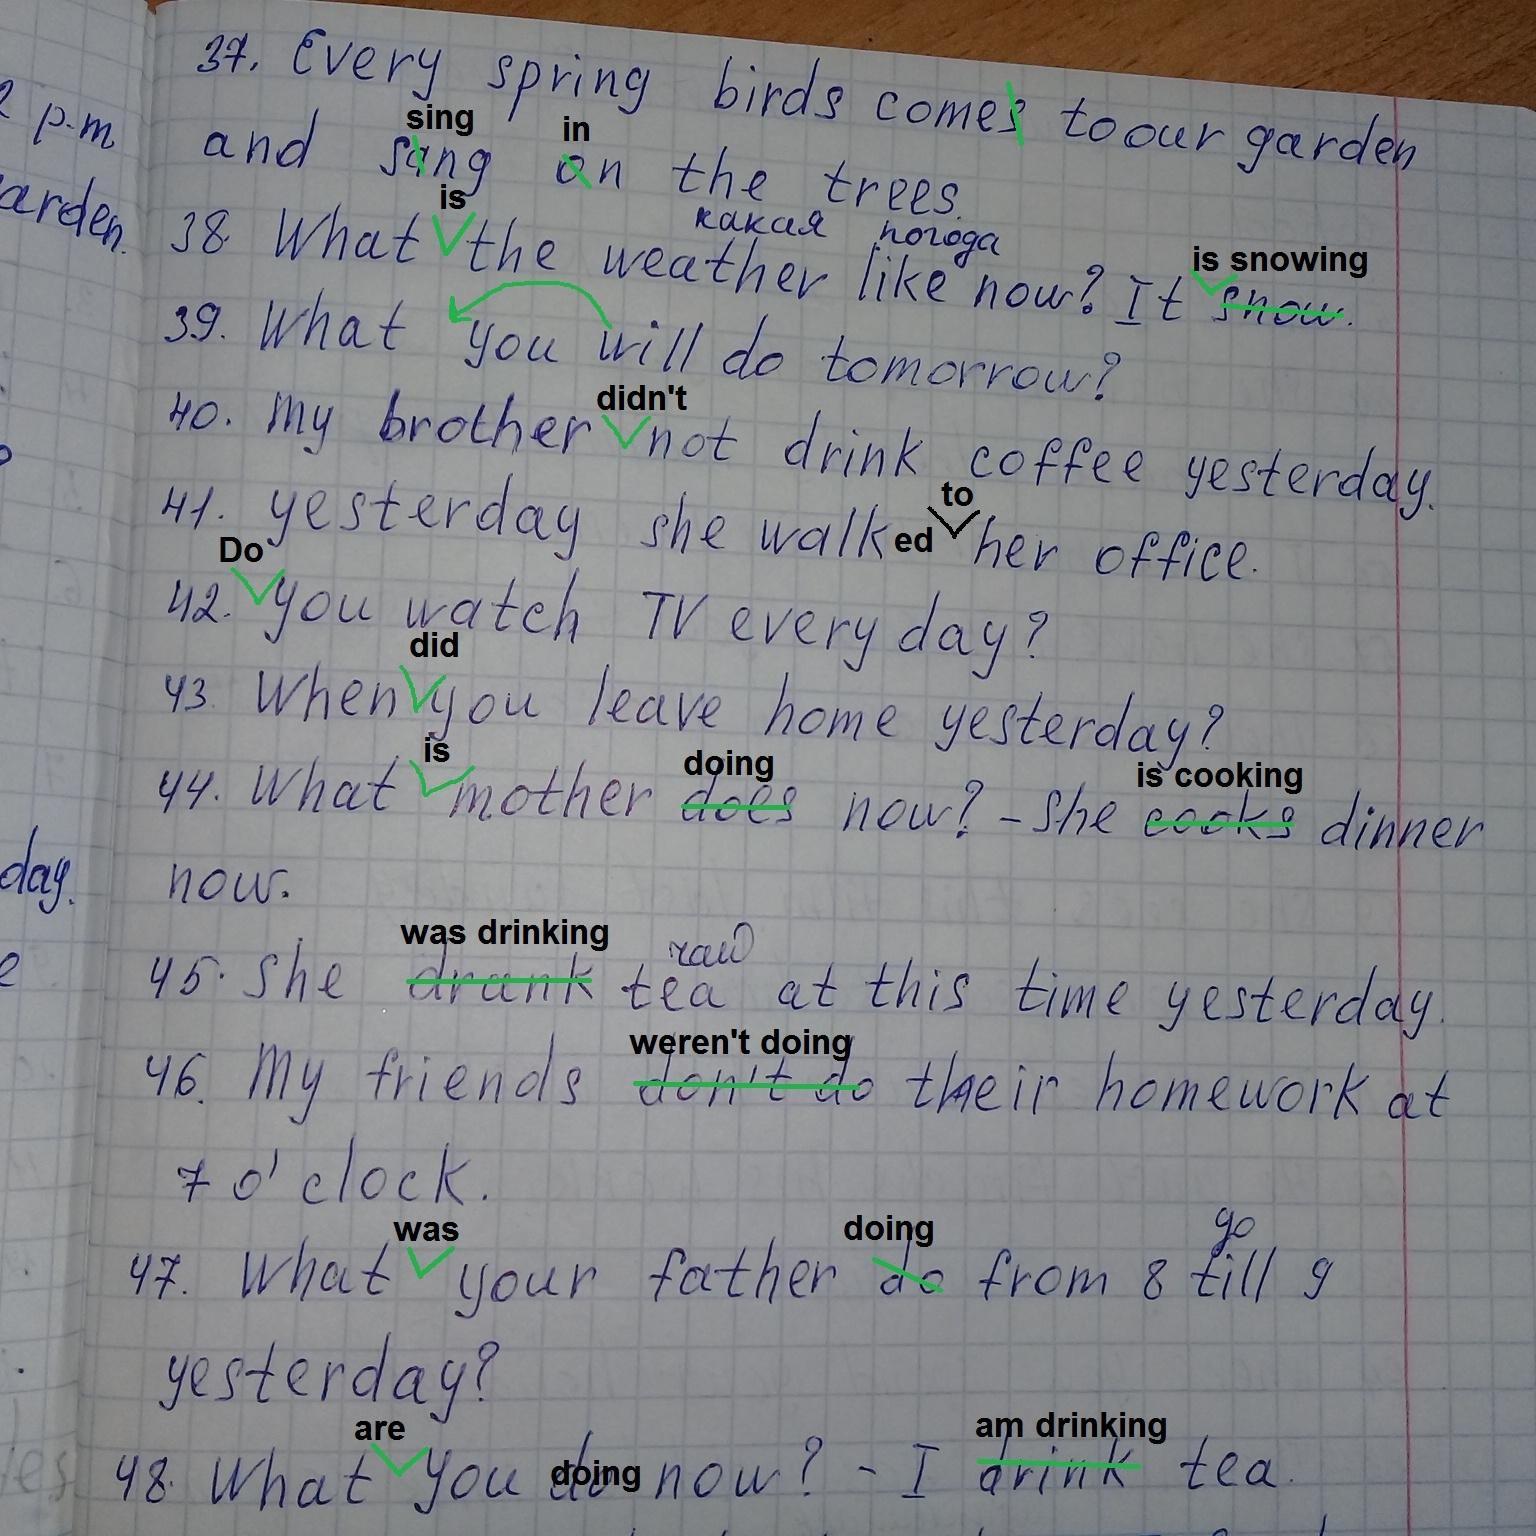 37. Every spring birds comes to our garden
sing in
and sang on the trees.
is какая погода
38. What the weather like now? It snow.
is snowing
39. What you will do tomorrow?
didn't
40. My brother not drink coffee yesterday.
to
41. yesterday she walked her office.
Do
42. you watch TV every day?
did
43. When you leave home yesterday?
is doing is cooking
44. What mother does now? - She cooks dinner
now.
was drinking чай
45. She drank tea at this time yesterday.
weren't doing
46. My friends don't do their homework at
7 o'clock.
was doing go
47. What your father do from 8 till 9
yesterday?
are am drinking
48. What you doing now? - I drink tea.
2 p.m
arden.
day.
e